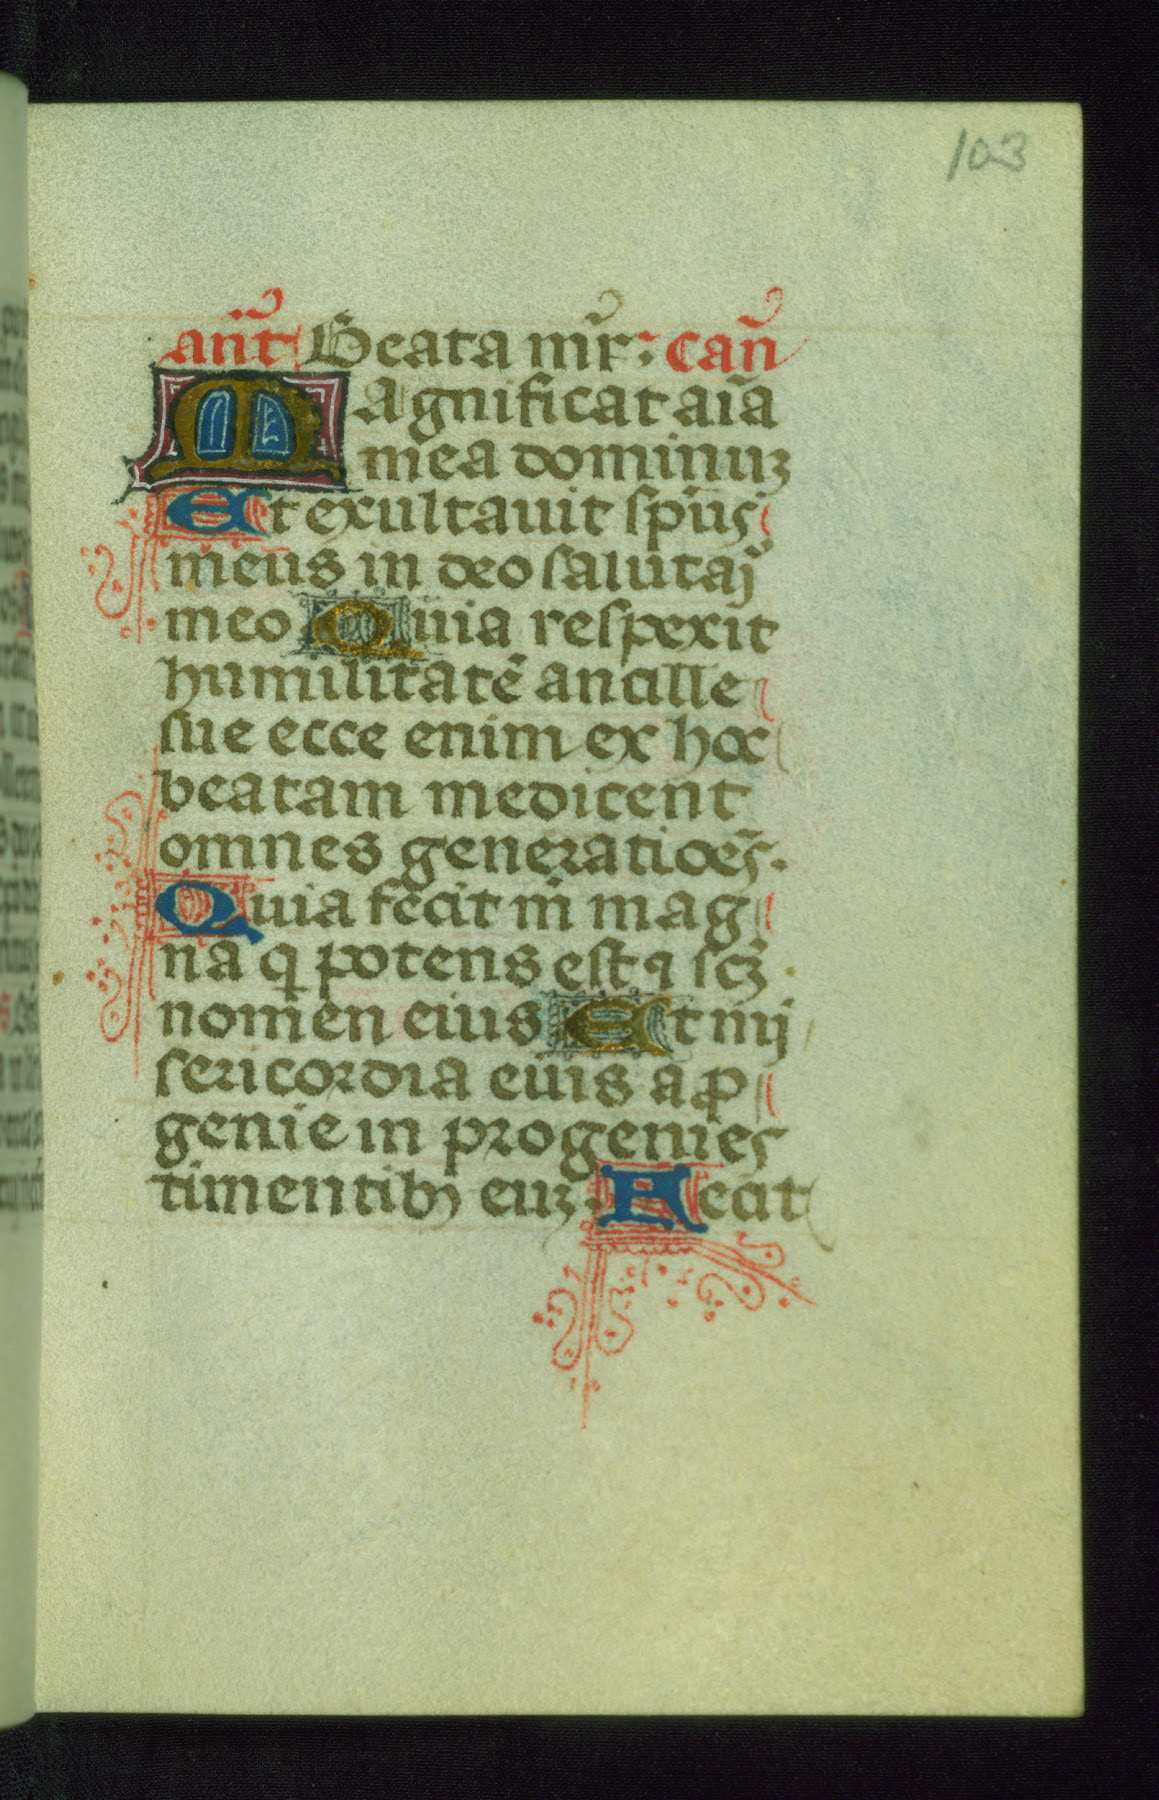 103
Añt Beata mr̃: Cañ
Magnificat aĩa
mea dominuʒ
Et exultauit sp̃us
meus in deo salutaj̃
meo Quia respexit
humilitatẽ ancille
sue ecce enim ex hoc
beatam me dicent
omnes generatioẽs.
Quia fecit m̃ mag
na q̃ potens est ⁊ scʒ̃
nomen eius Et mi
sericordia eius a ꝓ
genie in progenies
timentibꝫ euʒ. Fecit